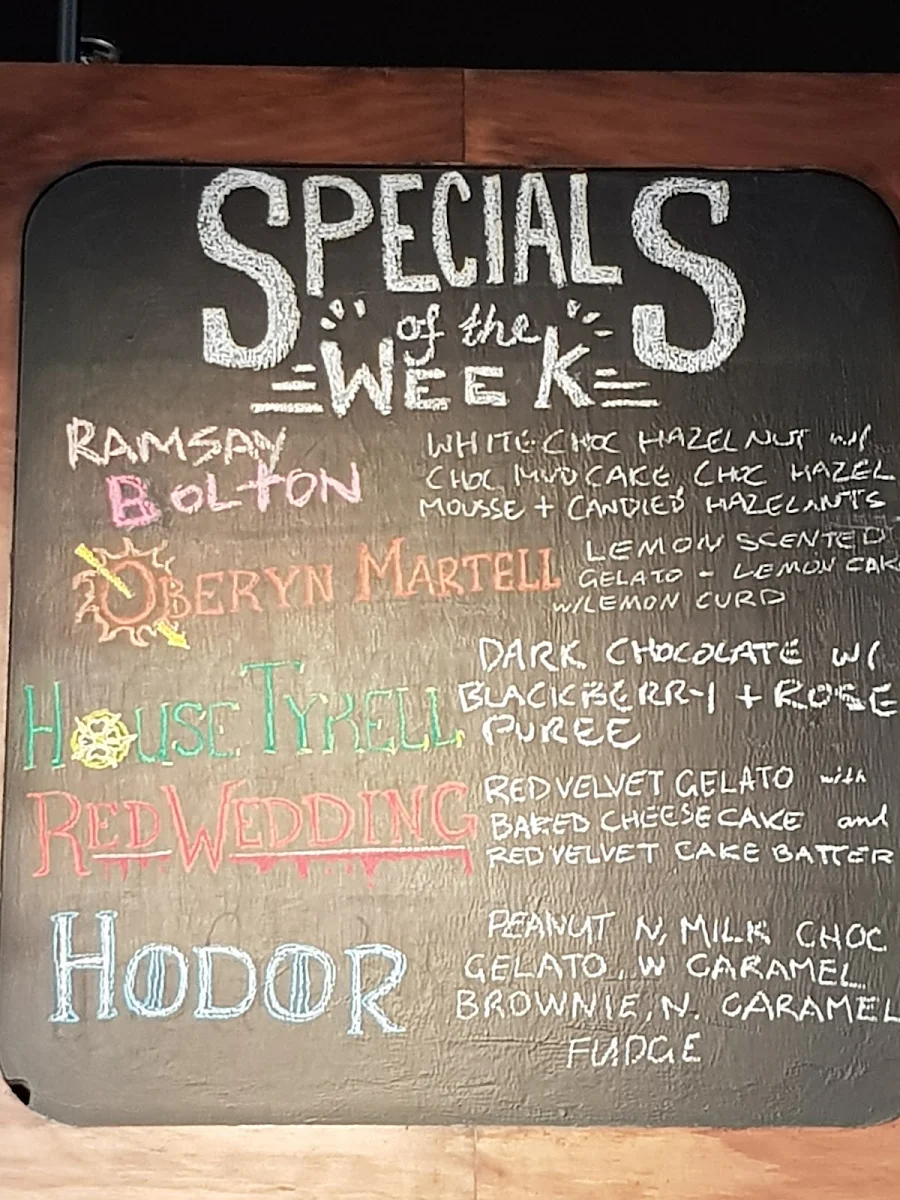 SPECIALS
of the
WEEK
RAMSAY
BOLTON
WHITE CHOC HAZELNUT w/
CHOC MUDCAKE, CHOC HAZEL
MOUSSE + CANDIED HAZELANTS
OBERYN MARTELL
LEMON SCENTED
GELATO - LEMON CAK
w/LEMON CURD
HOUSE TYRELL
DARK CHOCOLATE W/
BLACKBERRY + ROSE
PUREE
RED WEDDING
RED VELVET GELATO with
BAKED CHEESECAKE and
RED VELVET CAKE BATTER
HODOR
PEANUT N, MILK CHOC
GELATO, W CARAMEL
BROWNIE, N. CARAMEL
FUDGE